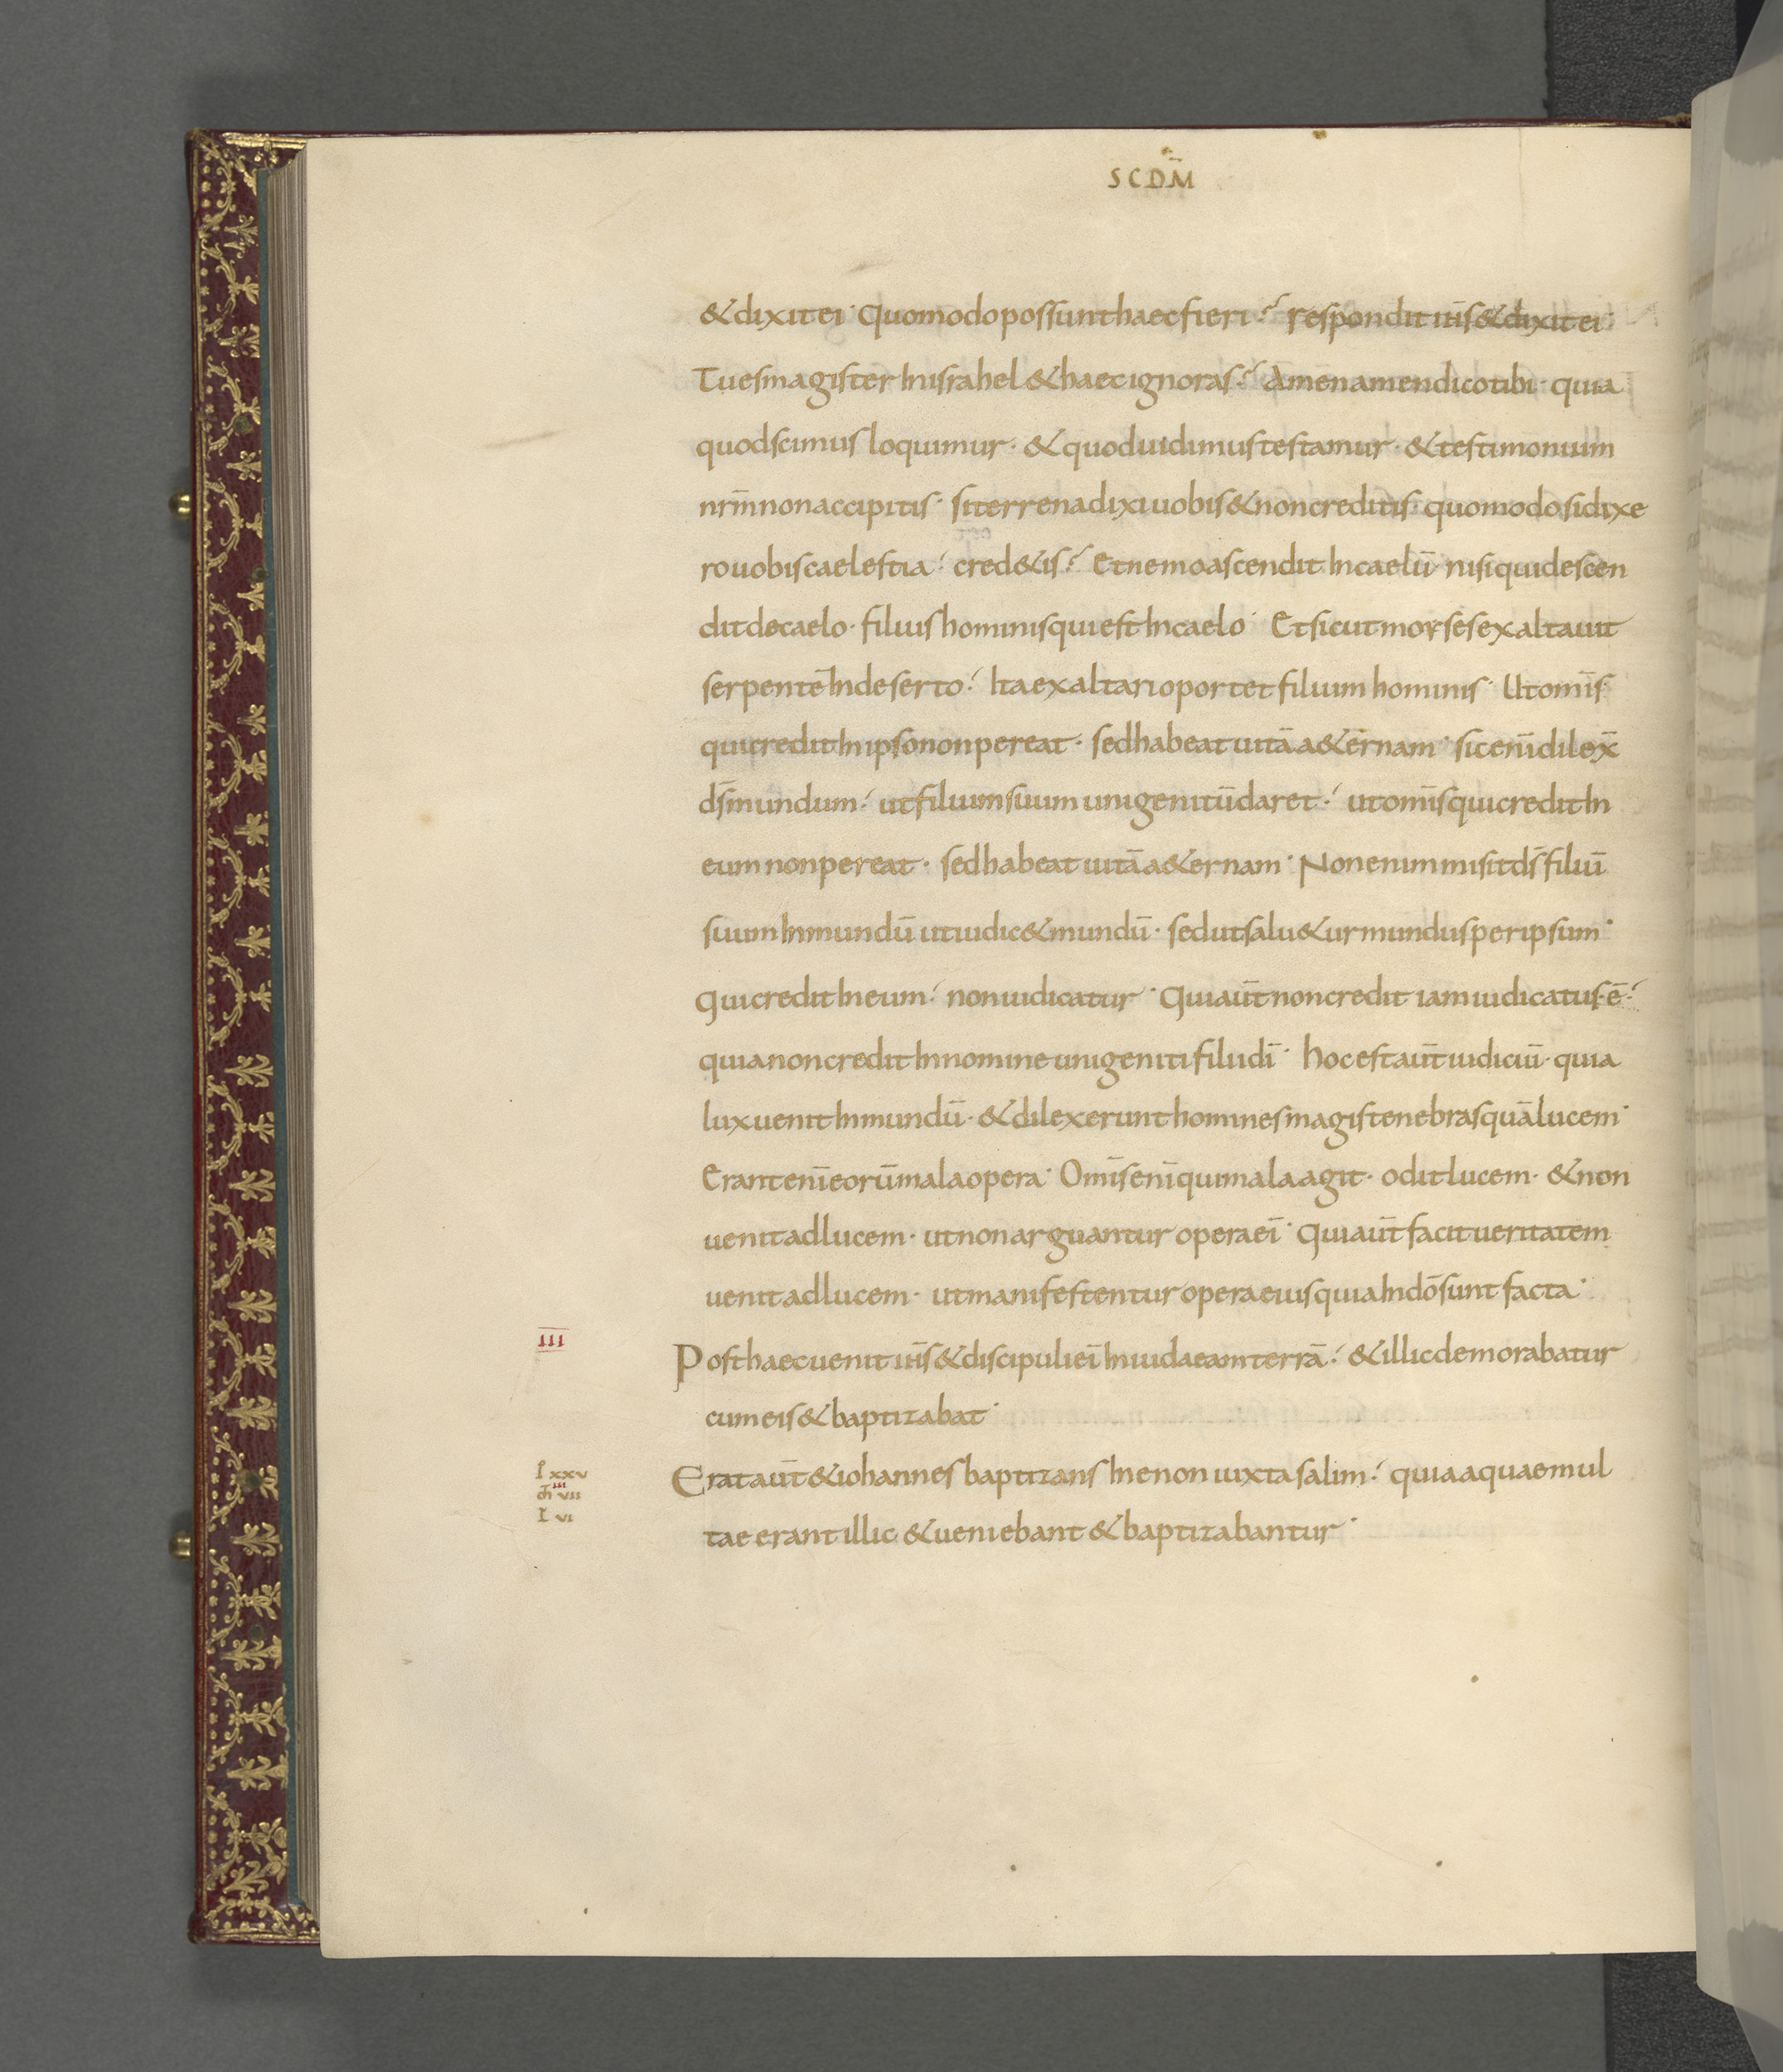 SCDM̄
& dixit ei· Quomodo possunt haec fieri? respondit ih̄s & dixit ei·
Tu es magister in israhel & haec ignoras? Amen amen dico tibi· quia
quod scimus loquimur· & quod uidimus testamur· & testimonium
nr̄m non accipitis· si terrena dixi uobis & non creditis· quomodo si dixe
ro uobis caelestia· cred&is? Et nemo ascendit in caelū· nisi qui descen
dit de caelo· filius hominis qui est in caelo· Et sicut moyses exaltauit
serpentē in deserto· ita exaltari oportet filium hominis· Ut omīs
qui credit in ipso non pereat· sed habeat uitā a&ernam· sic enī dilex̄
dš mundum· ut filium suum unigenitū daret· ut omīs qui credit in
eum non pereat· sed habeat uitā a&ernam· Non enim misit dš filiū
suum in mundū ut iudic& mundū· sed ut salu&ur mundus per ipsum·
Qui credit in eum· non iudicatur· Qui aūt non credit iam iudicatus·ē·
quia non credit in nomine unigeniti filii dī· hoc est aūt iudiciū· quia
lux uenit in mundū· & dilexerunt homines magis tenebras quā lucem·
Erant enī eorū mala opera· Omīs enī qui mala agit· odit lucem· & non
uenit ad lucem· ut non arguantur opera eī· Qui aūt facit ueritatem
uenit ad lucem· ut manifestentur opera eius quia in dō sunt facta·
III
Post haec uenit ih̄s & discipuli eī in iudaeam terrā· & illic demorabatur
cum eis & baptizabat·
I xxv
III
VII
L VI
Erat aūt & iohannes baptizans in enon iuxta salim· quia aquae mul
tae erant illic & ueniebant & baptizabantur·